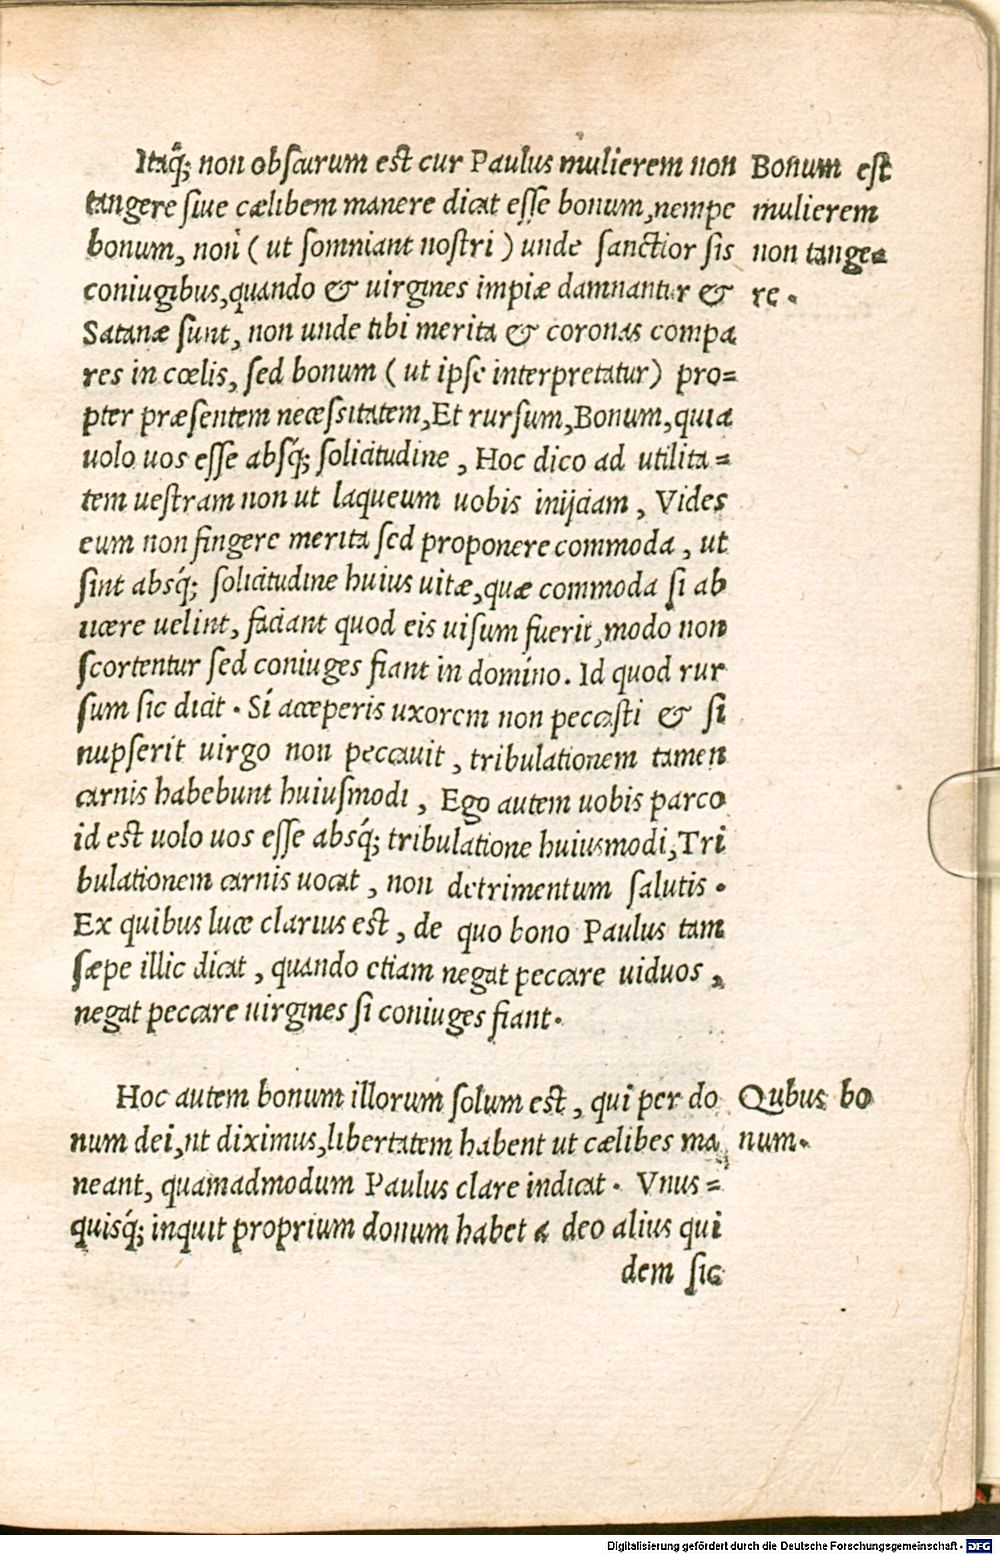 Itaq̃; non obscurum est cur Paulus mulierem non
tangere siue cælibem manere dicat esse bonum, nempe
bonum, non ( ut somniant nostri ) unde sanctior sis
coniugibus, quando & uirgines impiæ damnantur &
Satanæ sunt, non unde tibi merita & coronas compa
res in cœlis, sed bonum ( ut ipse interpretatur ) pro=
pter præsentem necessitatem, Et rursum, Bonum, quia
uolo uos esse absq́; solicitudine , Hoc dico ad utilita=
tem uestram non ut laqueum uobis inijciam , Vides
eum non fingere merita sed proponere commoda , ut
sint absq́; solicitudine huius uitæ, quæ commoda si ab
ijcere uelint, faciant quod eis uisum fuerit, modo non
scortentur sed coniuges fiant in domino. Id quod rur
sum sic dicit . Si acceperis uxorem non peccasti & si
nupserit uirgo non peccauit , tribulationem tamen
carnis habebunt huiusmodi , Ego autem uobis parco
id est uolo uos esse absq́; tribulatione huiusmodi, Tri
bulationem carnis uocat , non detrimentum salutis .
Ex quibus luce clarius est, de quo bono Paulus tam
sæpe illic dicat , quando etiam negat peccare uiduos ,
negat peccare uirgines si coniuges fiant.
Bonum est
mulierem
non tange=
re .
Hoc autem bonum illorum solum est , qui per do
num dei, nt diximus, libertatem habent ut cælibes ma
neant, quamadmodum Paulus clare indicat . Vnus=
quisq́; inquit proprium donum habet a deo alius qui
dem sic
Qubus bo
num.
Digitalisierung gefördert durch die Deutsche Forschungsgemeinschaft - DFG